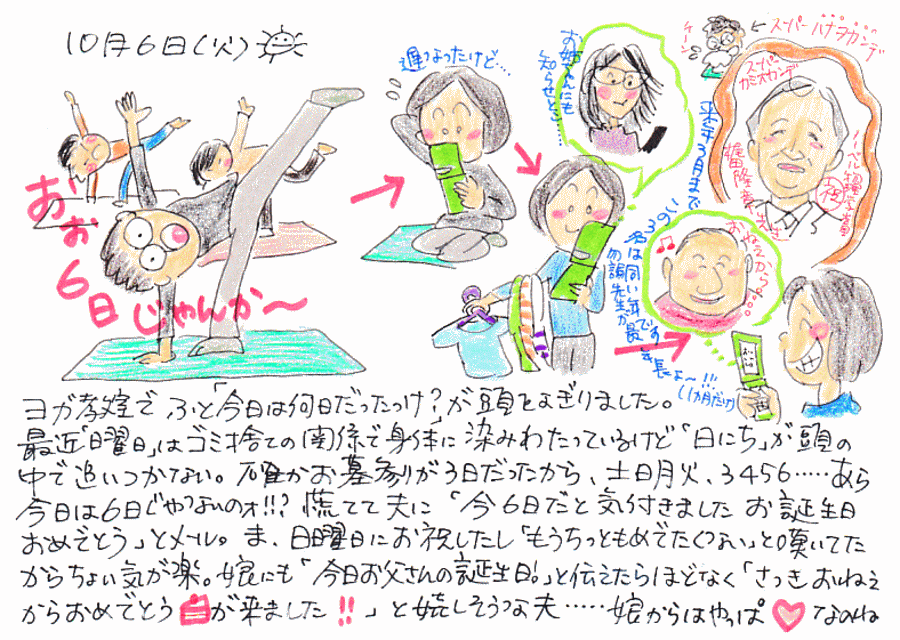 10月6日(火)
おお
6日じゃんか〜
遅くなったけど....
お姉ちゃんにも
知らせとこ.....
ケーン
スーパーハナヲカンデ
スーパー
カミオカンデ
ノーベル物理学賞
祝
梶田隆章先生
来年3月まで
君は同い年です
勿論先生が最
(1ヵ月だけ)
おねえから
ヨガ教室で ふと「今日は何日だったっけ?」が頭をよぎりました。
最近「曜日」はゴミ捨ての関係で身体に染みわたっているけど「日にち」が頭の
中で追いつかない。確かお墓参りが3日だったから、土日月火、3456.....あら
今日は6日じゃないのォ!!? 慌てて夫に「今6日だと気付きました お誕生日
おめでとう」とメール。ま、日曜日にお祝したし「もうちっともめでたくない」と嘆いてた
からちょい気が楽。娘にも「今日お父さんの誕生日!」と伝えたらほどなく「さっきおねえ
からおめでとう が来ました!!」と嬉しそうな夫......娘からはやっぱ なのね